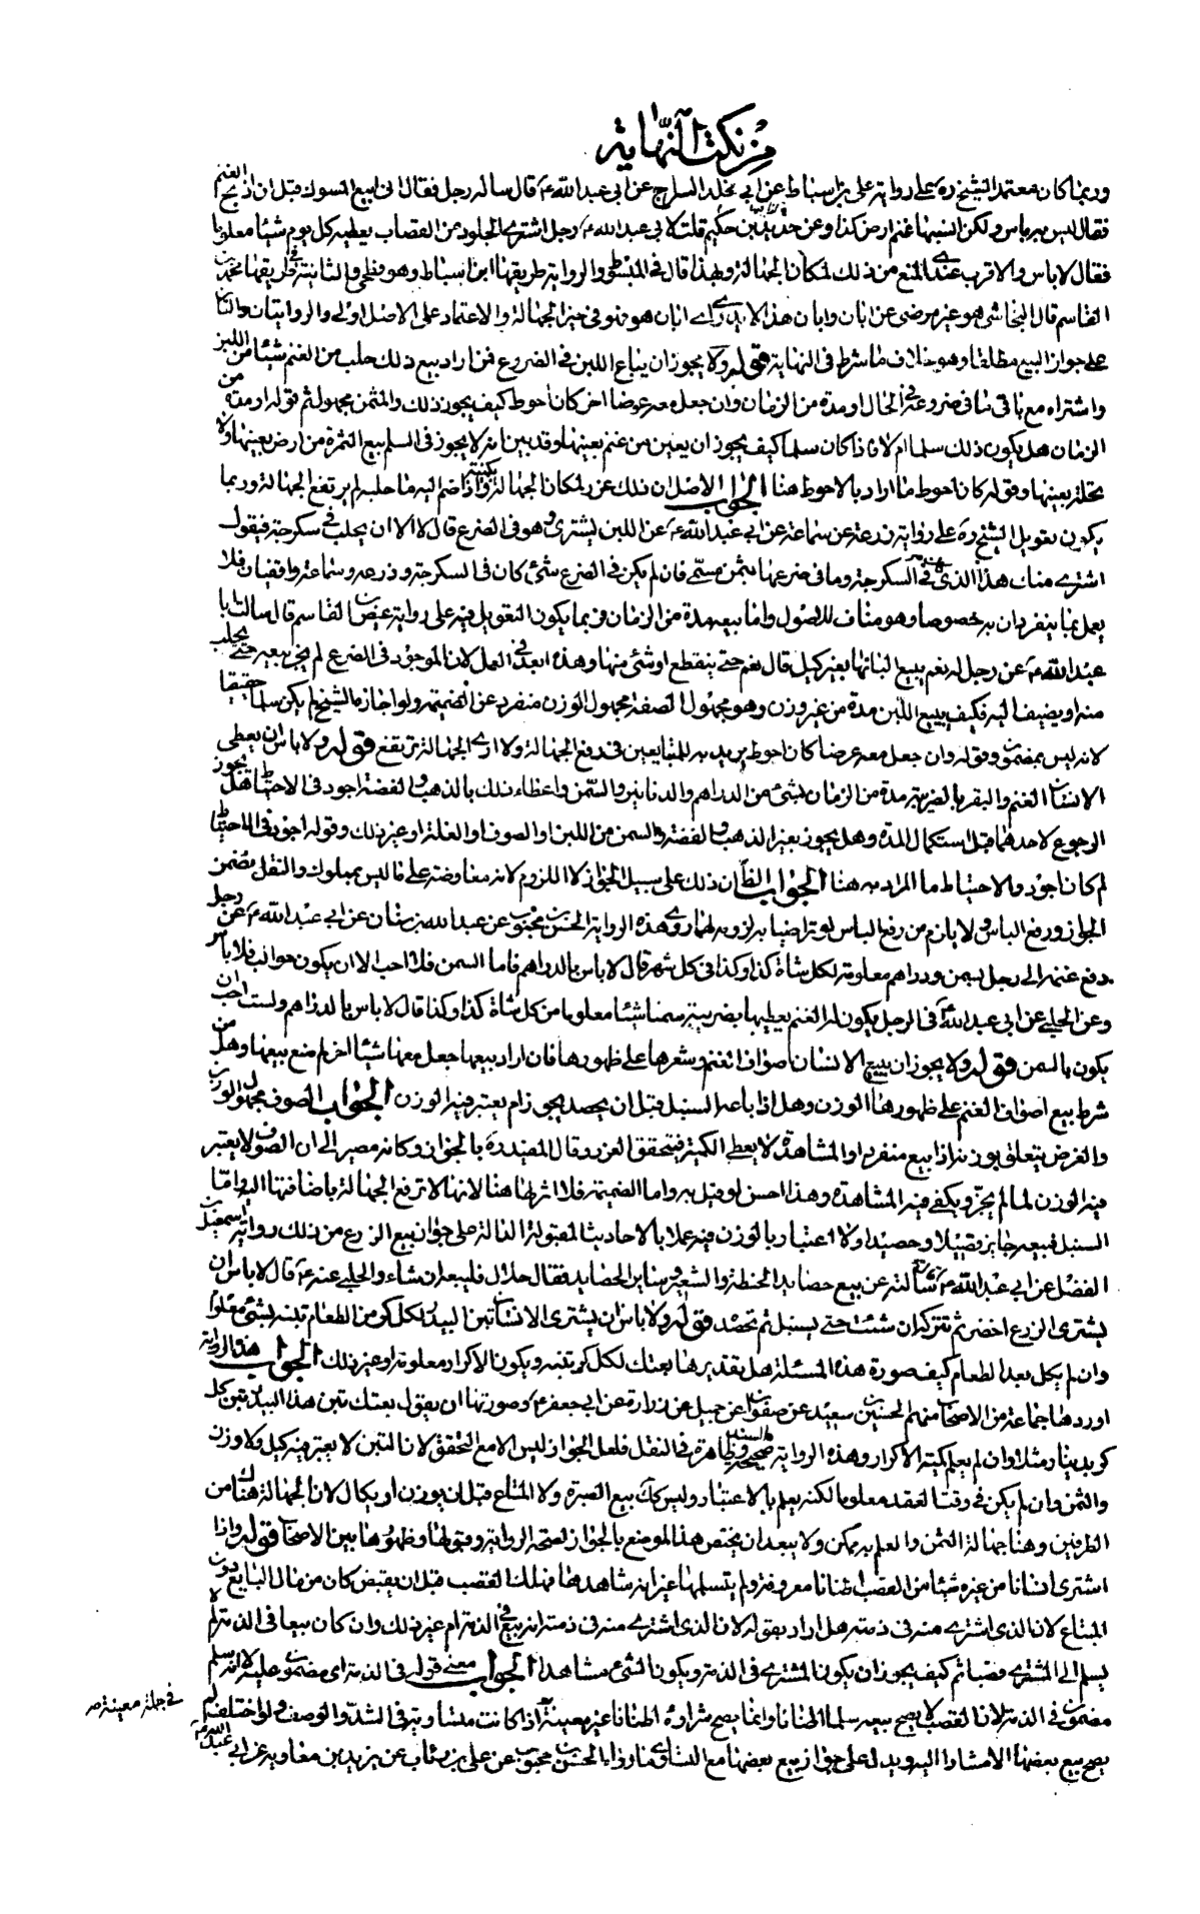 من نكت النهاية
وربما كان معتمد الشيخ ره على رواية علي بن اسباط عن ابي مخلد السراج عن ابي عبد الله ع قال ساله رجل فقال اني ابيع المسوك قبل ان اذبح الغنم
فقال ليس به باس ولكن انسبها غنم ارض كذا وعن حديد بن حكيم قلت لابي عبد الله ع رجل اشترى الجلود عن القصاب يعطيه كل يوم شيئا معلوما
فقال لا باس والاقرب عندي المنع من ذلك لمكان الجهالة ولهذا قال في المبسوط والرواية طريقها ابن اسباط وهو فطحي والثانية في طريقها محمد بن
القاسم قال النجاشي هو غير مرضي عن ابان وابان هذا لا يدرى اي ابان هو فهو في حيز الجهالة والاعتماد على الاصل اولى والروايتان دالتان
على جواز البيع مطلقا وهو خلاف ما شرط في النهاية قوله ولا يجوز ان يباع اللبن في الضروع فمن اراد بيع ذلك حلب من الغنم شيئا من اللبن
واشتراه مع ما في ضروعه في الحال او مدة من الزمان وان جعل معه عوضا اخر كان احوط كيف يجوز ذلك والمثمن مجهول ثم قوله او مدة من
الزمان هل يكون ذلك سلما ام لا فاذا كان سلما كيف يجوز ان يعين من غنم بعينها وقد بين انه لا يجوز في السلم بيع الثمرة من ارض بعينها ولا
نخلة بعينها وقوله كان احوط ما اراد بالاحوط هنا الجواب الاصل ان ذلك غرر لمكان الجهالة بكميته واذا ضم اليه ما حلبه لم يرتفع الجهالة وربما
يكون تعويل الشيخ ره على رواية زرعة عن سماعة عن ابي عبد الله ع عن اللبن يشترى وهو في الضرع قال لا الا ان يحلب في سكرجة فيقول
اشتري منك هذا الذي في السكرجة وما في ضرعها بثمن مسمى فان لم يكن في الضرع شئ كان في السكرجة وزرعة وسماعة واقفيان فلا
يعمل بما ينفردان به خصوصا وهو مناف للاصول واما بيعه مدة من الزمان فربما يكون التعويل فيه على رواية عيص بن القاسم قال سالت ابا
عبد الله ع عن رجل له نعم يبيع البانها بغير كيل قال نعم حتى ينقطع او شئ منها وهذه ابعد في العمل لان الموجود في الضرع لم يجز بيعه حتى يحلب
منه او يضيف اليه فكيف يبيع اللبن مدة من غير وزن وهو مجهول الصفة مجهول الوزن منفرد عن الضميمة ولو اجازه الشيخ لم يكن سلما حقيقيا
لانه ليس بمضمون وقوله وان جعل معه عرضا كان احوط يريد به للمتبايعين في دفع الجهالة ولا ارى الجهالة ترتفع قوله ولا باس ان يعطي
الانسان الغنم والبقر بالضريبة مدة من الزمان بشئ من الدراهم والدنانير والسمن واعطاء ذلك بالذهب والفضة اجود في الاحتياط هل يجوز
الرجوع لاحدهما قبل استكمال المدة وهل يجوز بغير الذهب والفضة والسمن من اللبن او الصوف او الغلة او غير ذلك وقوله اجود في الاحتياط
لم كان اجود والاحتياط ما المراد به هنا الجواب الظ ان ذلك على سبيل الجواز لا اللزوم لانه معاوضة على ما ليس بمملوك والنقل يضمن
الجواز ورفع الباس ولا يلزم من رفع الباس لو تراضيا به لزومه لهما روى هذه الرواية الحسن بن محبوب عن عبد الله بن سنان عن ابي عبد الله ع عن رجل
دفع غنمه الى رجل بسمن ودراهم معلومة لكل شاة كذا وكذا في كل شهر قال لا باس بالدراهم فاما السمن فلا احب الا ان يكون حوالب فلا باس
وعن الحلبي عن ابي عبد الله ع في الرجل يكون له الغنم يعطيها بضريبة سمنا شيئا معلوما من كل شاة كذا وكذا قال لا باس بالدراهم ولست احب ان
يكون بالسمن قوله ولا يجوز ان يبيع الانسان اصواف الغنم وشعرها على ظهورها فان اراد بيعها جعل معها شيئا اخر لم منع بيعها وهل من
شرط بيع اصواف الغنم على ظهورها الوزن وهل اذا باعه السنبل قبل ان يحصد يجوز ام يعتبر فيه الوزن الجواب الصوف مجهول الوزن
والغرض يتعلق بوزنه اذا بيع منفردا والمشاهدة لا يعطي الكمية فتحقق الغرر وقال المفيد ره بالجواز وكانه مصير الى ان الصوف لا يعتبر
فيه الوزن لما لم يجز ويكفي فيه المشاهدة وهذا احسن لو قيل به واما الضميمة فلا اثر لها هنا لانها لا ترفع الجهالة باضافتها اليه واما
السنبل فبيعه جايز قصيلا وحصيدا ولا اعتبار بالوزن فيه عملا بالاحاديث المقبولة الدالة على جواز بيع الزرع من ذلك رواية اسمعيل بن
الفضل عن ابي عبد الله ع سالته عن بيع حصايد الحنطة والشعير وساير الحصايد فقال حلال فليبعه ان شاء والحلبي عنه ع قال لا باس ان
يشترى الزرع اخضر ثم تتركه ان شئت حتى يسنبل ثم تحصد قوله ولا باس ان يشترى الانسان تبن البيدر لكل كر من الطعام تبنه بشئ معلوم
وان لم يكل بعد الطعام كيف صورة هذه المسئلة هل تقديرها بعتك لكل كر تبنه ويكون الاكرار معلومة او غير ذلك الجواب هذه الرواية
اوردها جماعة من الاصحاب منهم الحسين بن سعيد عن صفوان عن جميل عن زرارة عن ابي جعفر ع وصورتها ان يقول بعتك تبن هذا البيدر تبن كل
كر بدينار مثلا وان لم يعلم كمية الاكرار وهذه الرواية صحيحة السند وظاهرة في النقل فلعل الجواز ليس الا مع التحقق لان التبن لا يعتبر فيه كيل ولا وزن
والثمن وان لم يكن في وقت العقد معلوما لكنه يعلم بالاعتبار وليس كك بيع الصبرة ولا المتاع قبل ان يوزن او يكال لان الجهالة هناك من
الطرفين وهنا جهالة الثمن والعلم به ممكن ولا يبعد ان يختص هذا الموضع بالجواز لصحة الرواية وقبولها وظهورها بين الاصحاب قوله واذا
اشترى انسانا من غيره شيئا من القصب اطنانا معروفة ولم يتسلمها غير انه شاهدها فهلك القصب قبل ان يقبض كان من مال البايع دون
المبتاع لان الذي اشترى منه في ذمته هل اراد بقوله لان الذي اشترى منه في ذمته انه بيع في الذمة ام غير ذلك وان كان بيعا في الذمة لم لا
يسلم الى المشتري قصبا ثم كيف يجوز ان يكون المشترى في الذمة ويكون الشئ مشاهدا الجواب معنى قوله في الذمة اي مضمون عليه لا انه سلم
مضمون في الذمة لان القصب لا يصح بيعه سلما اطنانا وانما يصح شراؤه اطنانا غير معينة اذا كانت متساوية في الشد والوصف ولو اختلف لم
في جملة معينة صح
يصح بيع بعضها الا مشارا اليه ويدل على جواز بيع بعضها مع التساوي ما رواه الحسن بن محبوب عن علي بن رئاب عن بريد بن معاوية عن ابي عبد الله ع